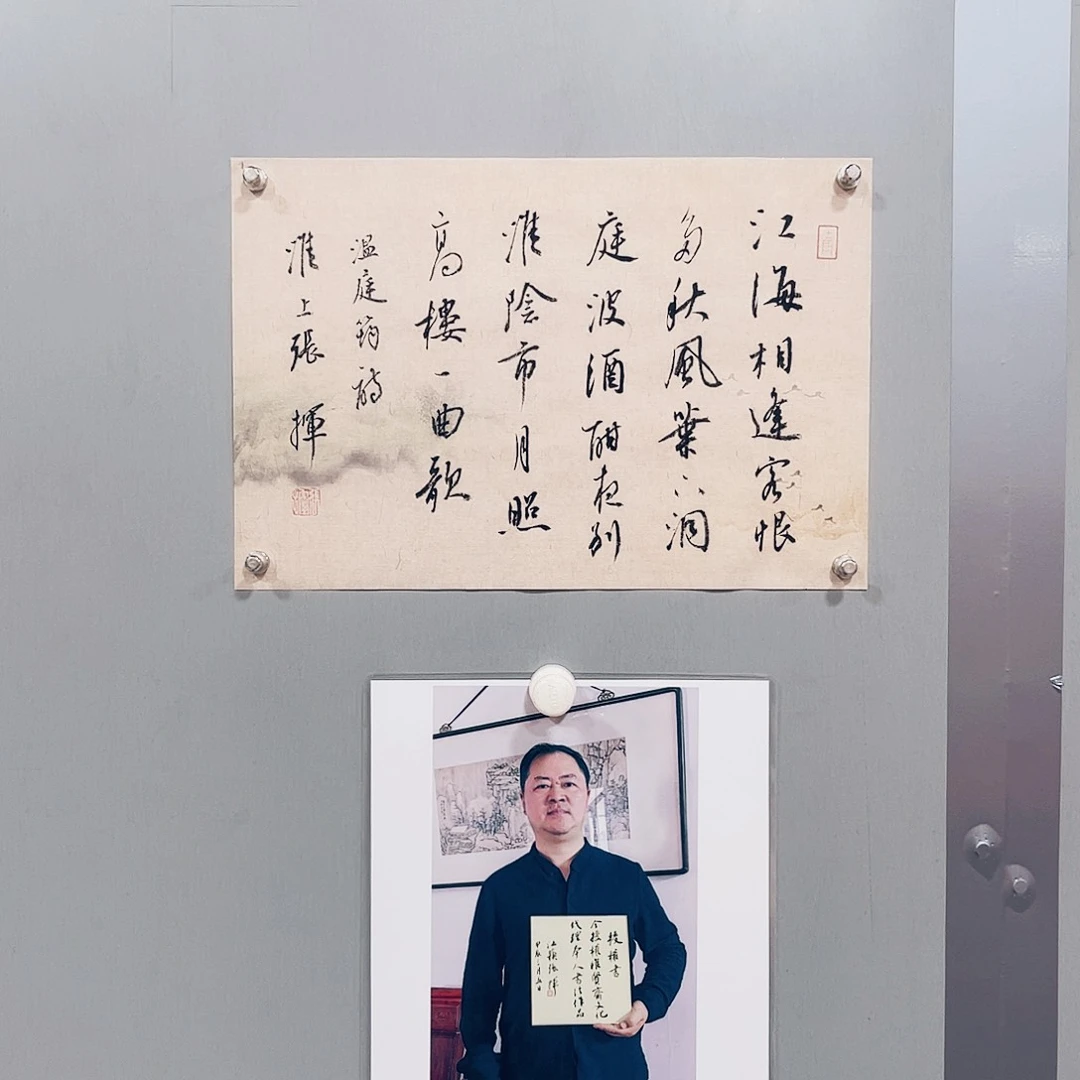 江海相逢客恨
多秋風葉下洞
庭波酒酣夜別
淮陰市月照
高樓一曲歌
温庭筠詩
淮上張揮
授權書
今授權淮齋文化
代理本人書法作品
張揮